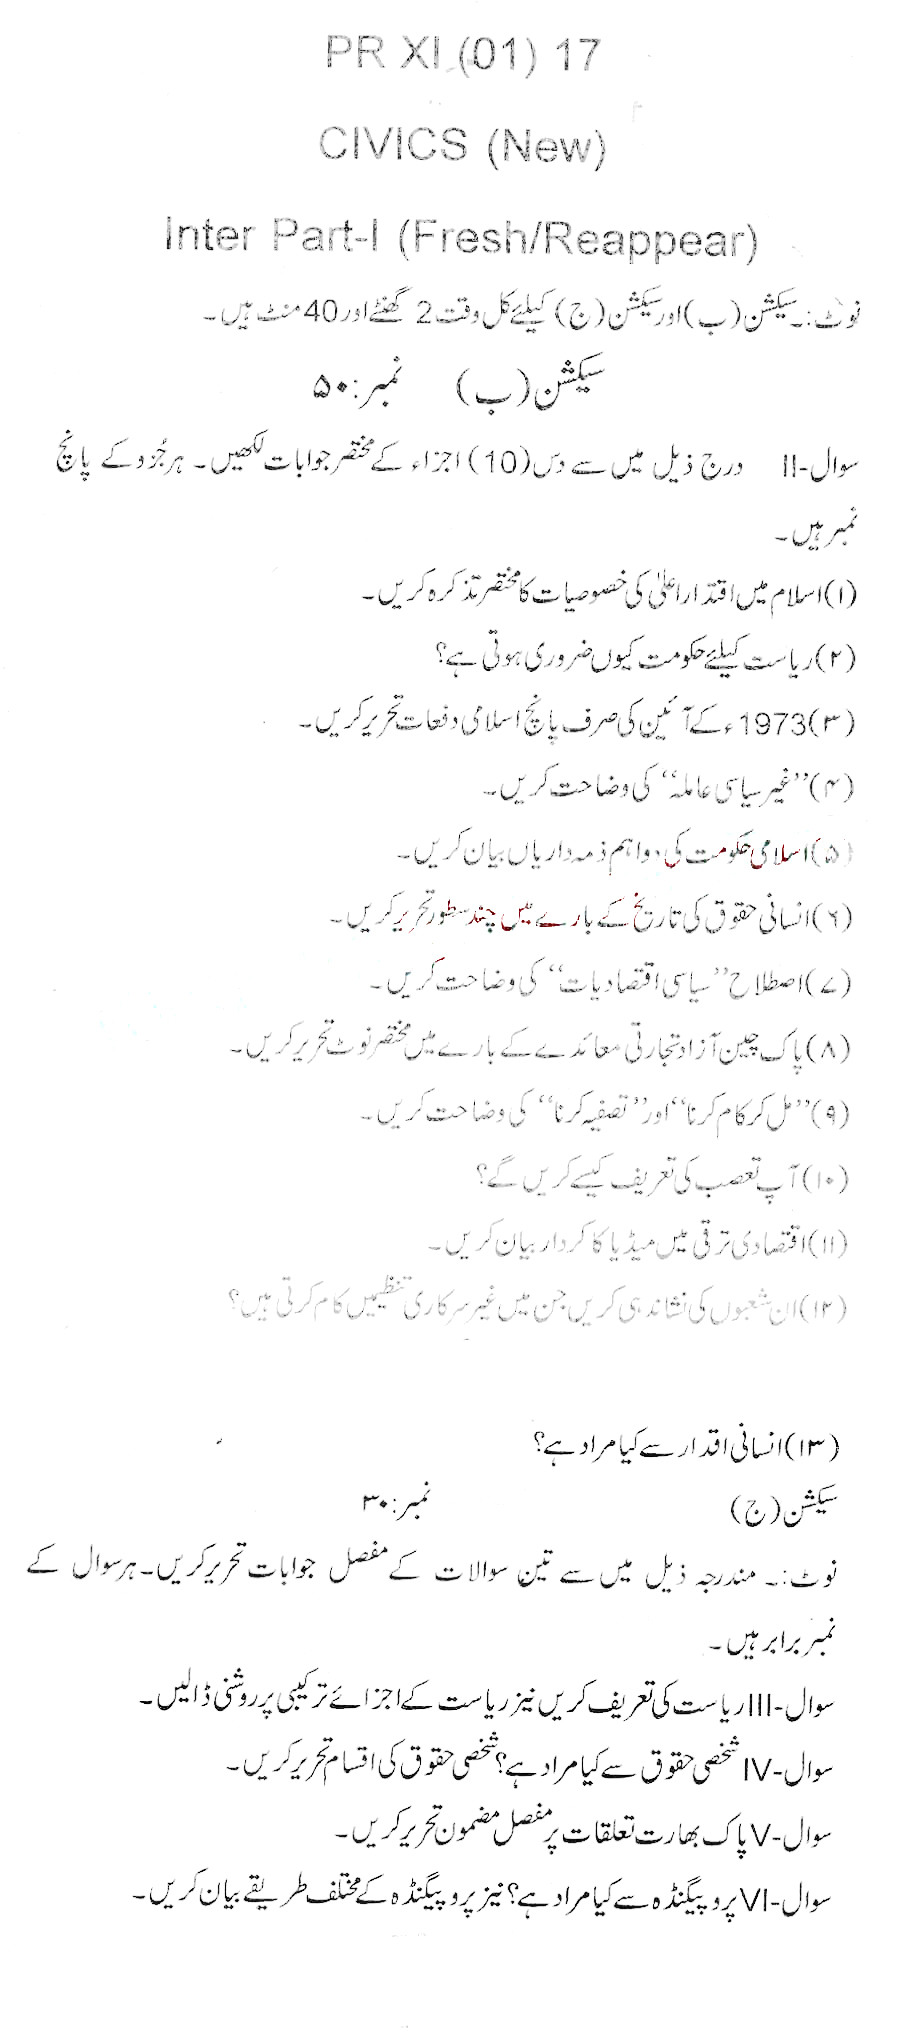 PR XI (01) 17
CIVICS (New)
Inter Part-I (Fresh/Reappear)
نوٹ:۔ سیکشن (ب) اور سیکشن (ج) کیلئے کل وقت 2 گھنٹے اور 40 منٹ ہیں۔
سیکشن (ب) نمبر: ۵۰
سوال-II درج ذیل میں سے دس (10) اجزاء کے مختصر جوابات لکھیں۔ ہر جُزو کے پانچ
نمبر ہیں۔
(۱) اسلام میں اقتدار اعلیٰ کی خصوصیات کا مختصر تذکرہ کریں۔
(۲) ریاست کیلئے حکومت کیوں ضروری ہوتی ہے؟
(۳) 1973ء کے آئین کی صرف پانچ اسلامی دفعات تحریر کریں۔
(۴) ”غیر سیاسی عاملہ“ کی وضاحت کریں۔
(۵) اسلامی حکومت کی دو اہم ذمہ داریاں بیان کریں۔
(۶) انسانی حقوق کی تاریخ کے بارے میں چند سطور تحریر کریں۔
(۷) اصطلاح ”سیاسی اقتصادیات“ کی وضاحت کریں۔
(۸) پاک چین آزاد تجارتی معائدے کے بارے میں مختصر نوٹ تحریر کریں۔
(۹) ”مل کر کام کرنا“ اور ”تصفیہ کرنا“ کی وضاحت کریں۔
(۱۰) آپ تعصب کی تعریف کیسے کریں گے؟
(۱۱) اقتصادی ترقی میں میڈیا کا کردار بیان کریں۔
(۱۲) ان شعبوں کی نشاندہی کریں جن میں غیر سرکاری تنظیمیں کام کرتی ہیں؟
(۱۳) انسانی اقدار سے کیا مراد ہے؟
سیکشن (ج) نمبر: ۳۰
نوٹ:۔ مندرجہ ذیل میں سے تین سوالات کے مفصل جوابات تحریر کریں۔ ہر سوال کے
نمبر برابر ہیں۔
سوال-III ریاست کی تعریف کریں نیز ریاست کے اجزائے ترکیبی پر روشنی ڈالیں۔
سوال-IV شخصی حقوق سے کیا مراد ہے؟ شخصی حقوق کی اقسام تحریر کریں۔
سوال-V پاک بھارت تعلقات پر مفصل مضمون تحریر کریں۔
سوال-VI پروپیگنڈہ سے کیا مراد ہے؟ نیز پروپیگنڈہ کے مختلف طریقے بیان کریں۔